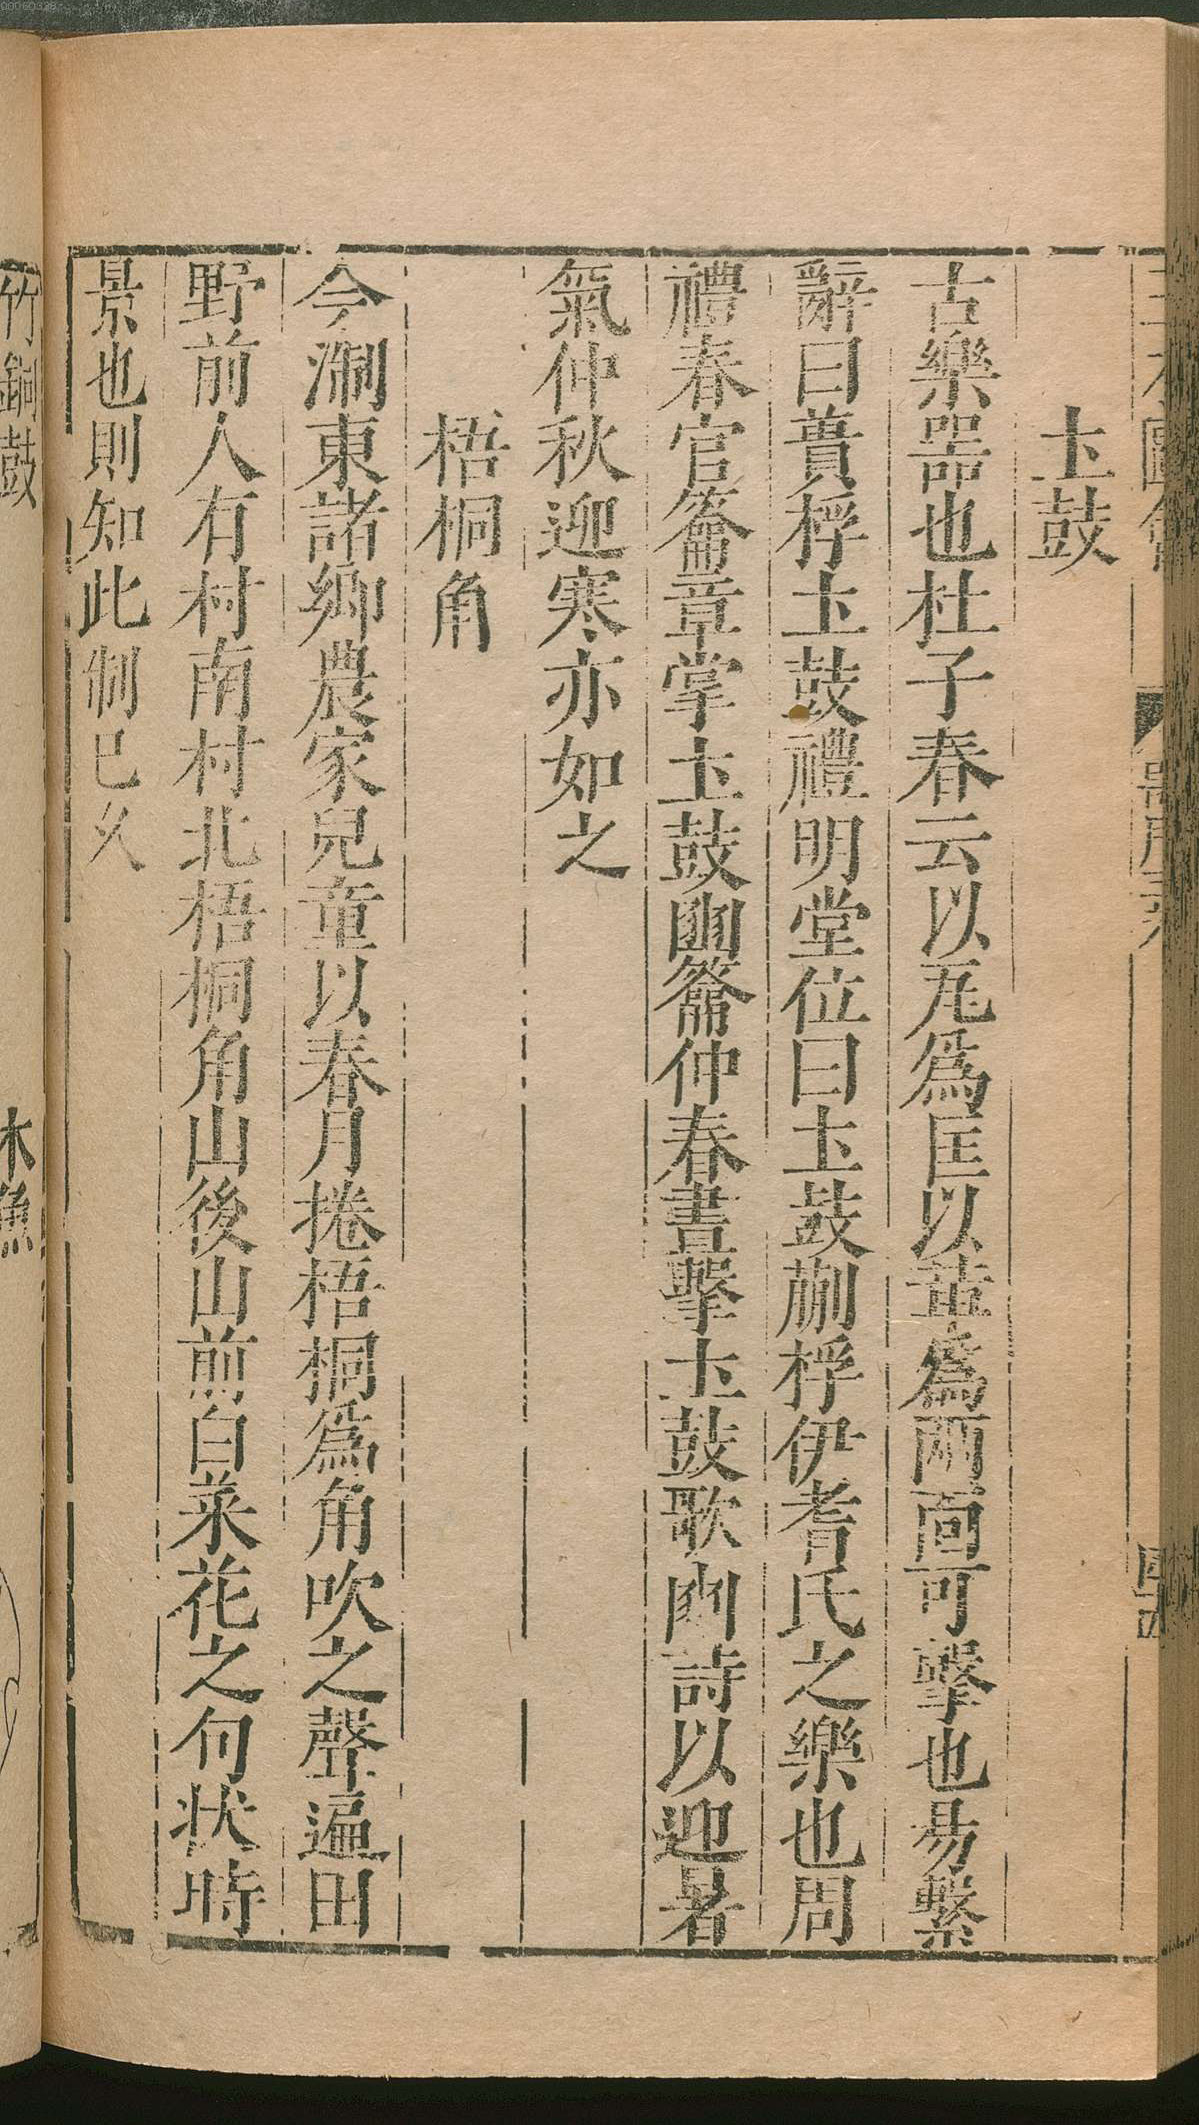 土鼓
古樂器也杜子春云以瓦爲匡以革爲兩面可擊也易繫
辭曰蕢桴土鼓禮明堂位曰土鼓蒯桴伊耆氏之樂也周
禮春官籥章掌土鼓豳籥仲春晝擊土鼓歌豳詩以迎暑
氣仲秋迎寒亦如之
梧桐角
今淛東諸鄉農家兒童以春月捲梧桐爲角吹之聲遍田
野前人有村南村北梧桐角山後山前白菜花之句狀時
景也則知此制已久
竹銅鼓
木魚